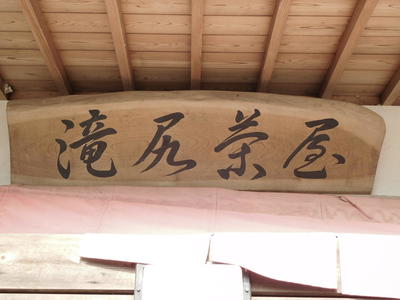 滝尻茶屋